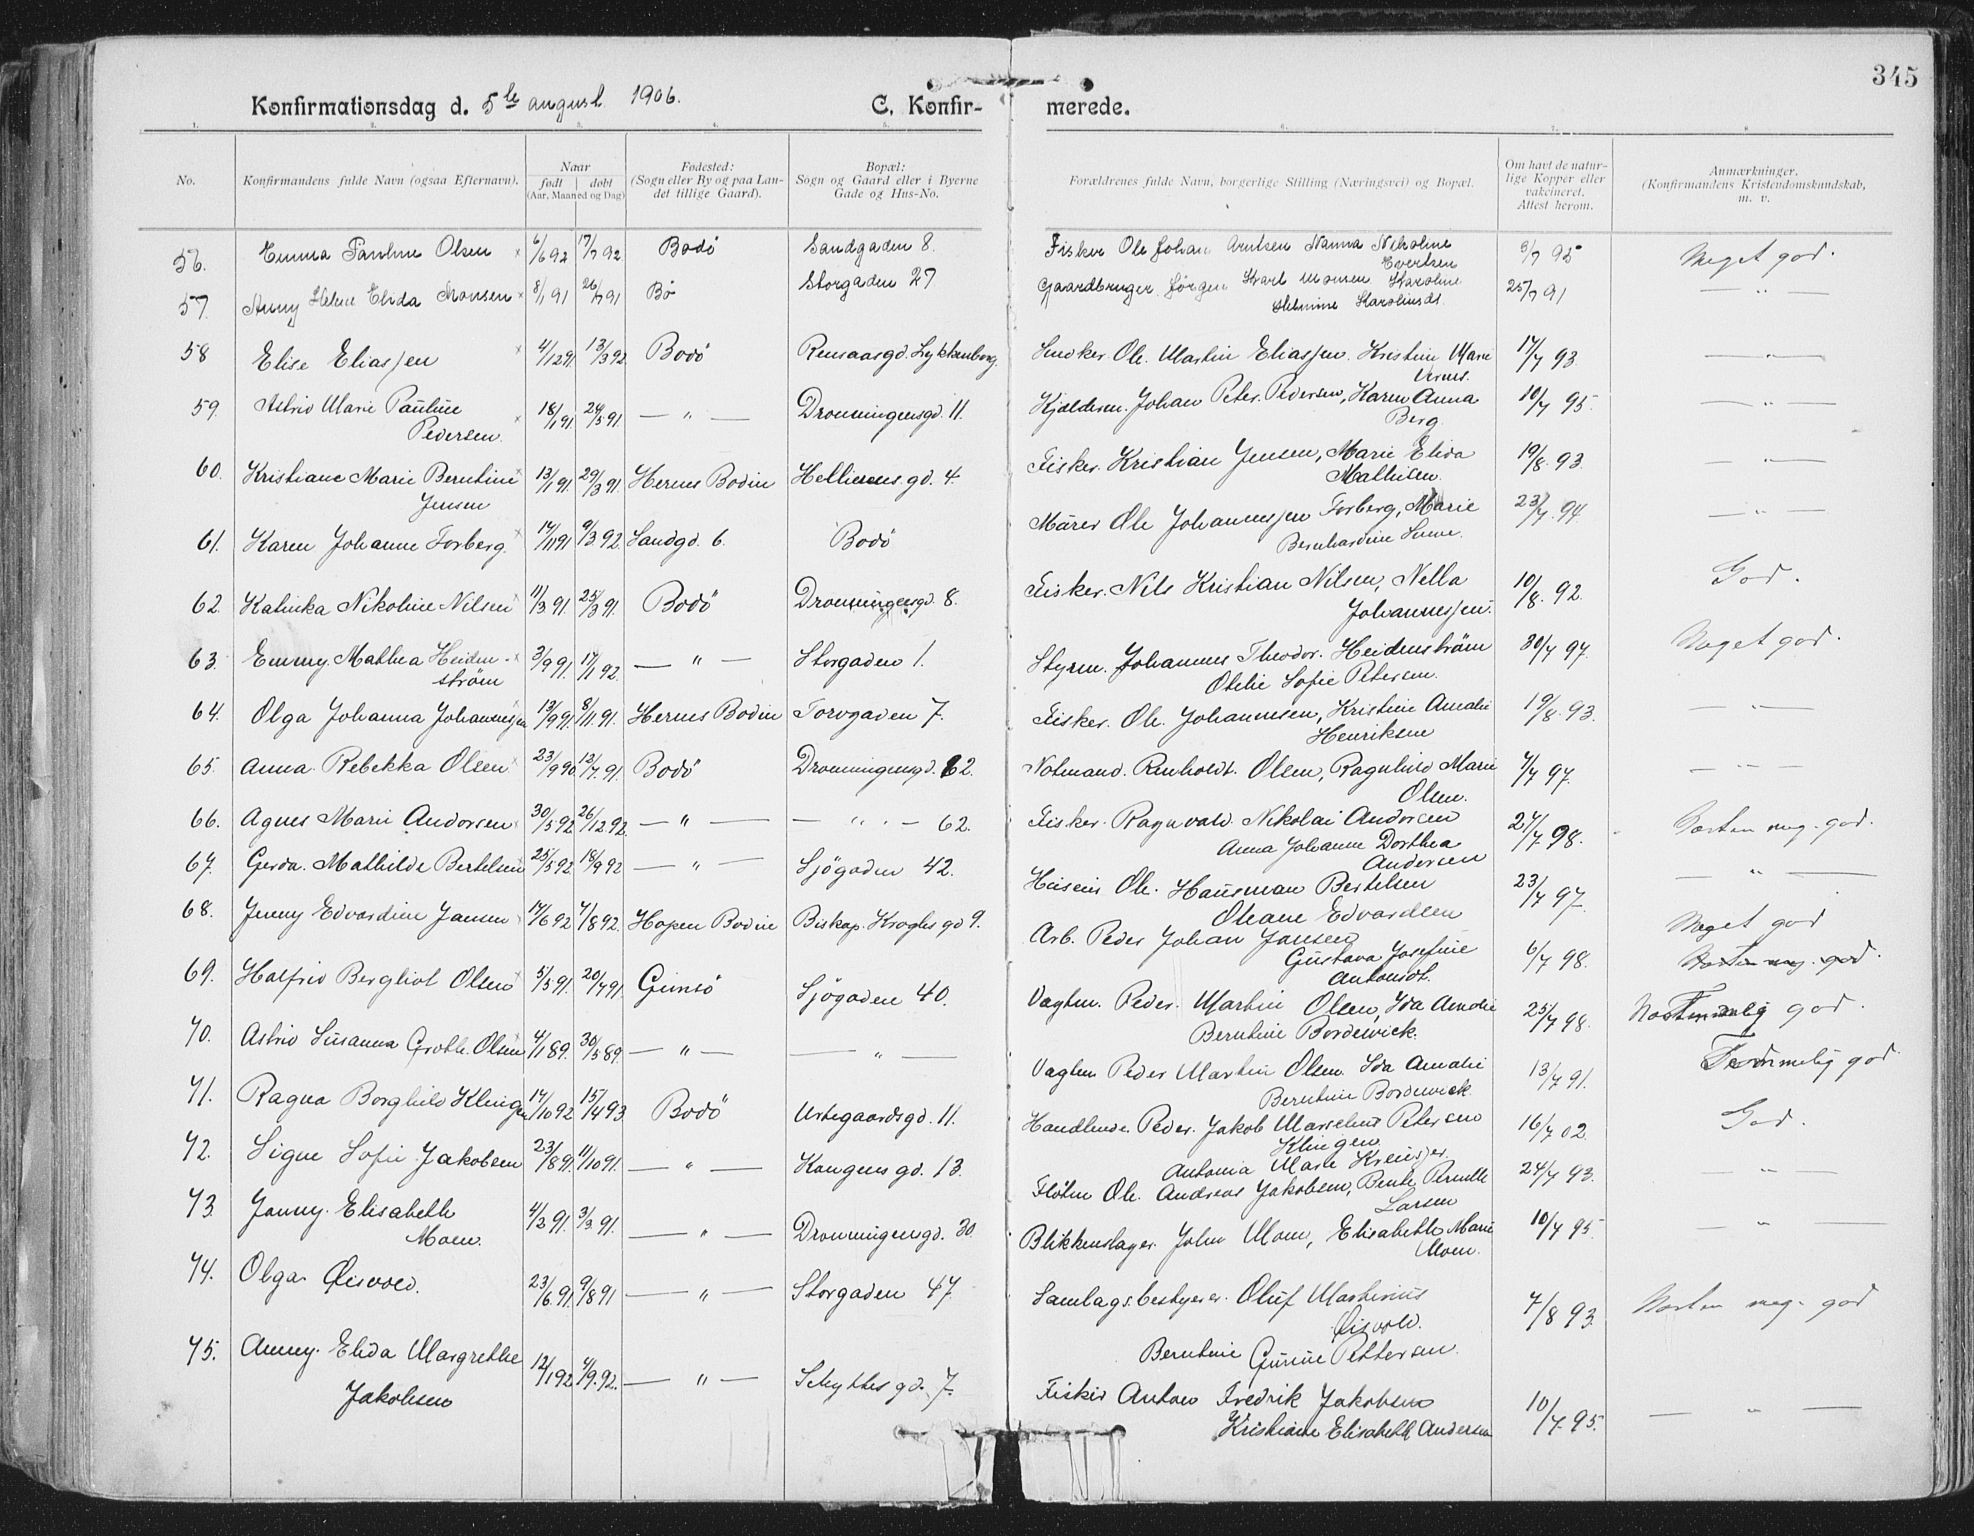 345
Konfirmationsdag d. 5te august 1906. C. Konfir- merede.
1. 2. 3. 4. 5. 6. 7. 8.
No. Konfirmandens fulde Navn (ogsaa Efternavn). Naar født døbt (Aar, Maaned og Dag) Fødested: (Sogn eller By og paa Landet tillige Gaard). Bopæl: Sogn og Gaard eller i Byerne Gade og Hus-No. Forældrenes fulde Navn, borgerlige Stilling (Næringsvei) og Bopæl. Om havt de naturlige Kopper eller vakcineret. Attest herom. Anmærkninger. (Konfirmandens Kristendomskundskab, m. v.
56. Emma Pauline Olsen 6/6 92 17/7 92 Bodö Sandgaden 8. Fisker Ole Johan Arntsen Nanna Nikoline 9/7 95 Meget god.
Evertsen
57. Anny Helene Elida Monsen 8/1 91 26/7 91 Bø Storgaden 27 Gaardbruger Jörgen Skart Monsen Karoline 25/7 91 — " —
Helmine Karolinsdt.
58 Elise Eliassen 4/12 91 13/3 92 Bodö Rensaasgd. Lykkenborg. Smoker. Ole Martin Eliassen. Kristine Marie 17/7 93 — " —
59. Astrid Marie Pauline 18/1 91 24/5 91 — " — Dronningensgd. 11. Kjælderm. Johan Peter Pedersen, Karen Anna 10/7 95. — " —
Pedersen. Berg.
60. Kristiane Marie Berntine 13/1 91 29/3 91. Hernes Bodin Hellienes gd. 4. Fisker. Kristian Jensen, Marie Elida 19/8. 93. — " —
Jensen Mathisen.
61. Karen Johanne Forberg. 14/11 91 9/3 92. Sandgd. 6. Bodö Mürer Ole Johannessen Forberg, Marie 23/7. 94. — " —
Bernhardine
62. Kalinka Nikoline Nilsen 11/3 91. 25/3 91. Bodö Dronningensgd. 8. Fisker. Nils Kristian Nilsen, Nella 10/8. 92. God.
Johannessen.
63. Emmy. Mathea Heiden- 3/9 91. 17/1 92. — " — Storgaden 1. Styrm. Johannes Theodor. Heidenström 30/7 97. Meget god.
ström Otelie Sofie Petersen.
64. Olga Johanna Johannessen 13/9 91. 8/11 91. Hernes Bodin Torvgaden 7. Fisker. Ole. Johannesen, Kristine Amalie 19/8. 93. — " —
Henriksen
65. Anna. Rebekka Olsen 23/9 90. 12/7. 91. Bodö Dronningensgd. 62. Notmand. Reinholdt. Olsen, Ragnhild Marie 7/7 97. — " —
Olsen.
66. Agnes Marie Andorsen 30/5 92 26/12 92. — " — — " — 62. Fisker. Ragnvald. Nikolai Andorsen 27/7 98. Næsten meg. god.
Anna Johanne Dorthea
Andersen
67. Gerda. Mathilde Bertelsen 25/5 92 18/9 92 — " — Sjögaden 42. Huseier Ole. Hausman Bertelsen 23/7 97. — " —
Oleane Edvardsen
68. Jenny Edvardine Jansen 14/6 92 7/8 92. Hopen Bodin Biskop. Kroghs gd 9. Arb. Peder Johan Jansen 6/7 98. Meget god
Gustava Josefine
Antonsdt.
69. Halfrid Bergliot Olsen 5/5 91. 20/7 91 Gimsö Sjögaden 40. Vagtm. Peder. Martin Olsen, Ida Amalie 25/7 98. Temmelig god.
Berntine Bordewick.
70. Astrid Susanna Grothe. Olsen 4/1 89. 30/5 89. — " — — " — Vagtm Peder Martin Olsen. Ida Amalie 13/7 91. Temmelig god
Berntine Bordewick.
71. Ragna Borghild Klingen 14/10 92 15/4 93 Bodö Urtegaardsgd. 11. Handlende. Peder. Jakob Marselius Petersen 16/7 02. God.
Klingen
Antonia Marie
72. Signe Sofie Jakobsen 23/8 91. 11/10 91. — " — Kongens gd. 13. Flötm Ole. Andreas Jakobsen, Bente Pernille 24/7 93. — " —
Larsen
73. Janny. Elisabeth 4/2 91. 3/3. 91. — " — Dronningengd. 30. Blikkenslager. John Moen, Elisabeth Marie 10/7 95 — " —
Moen. Moen.
74. Olga Öisvold. 23/6. 91. 9/8 91 — " — Storgaden 47. Samlagsbestyrer. Oluf Martinius 7/8 93. Næsten meg. god
Öisvold.
Berntine Gurine Pettersen.
75. Anny. Elida Margrethe 12/1 92 4/9. 92. — " — Schyttes gd. 7. Fisker Anton Fredrik Jakobsen 10/7. 95. — " —
Jakobsen Kristiane Elisabeth Andersen